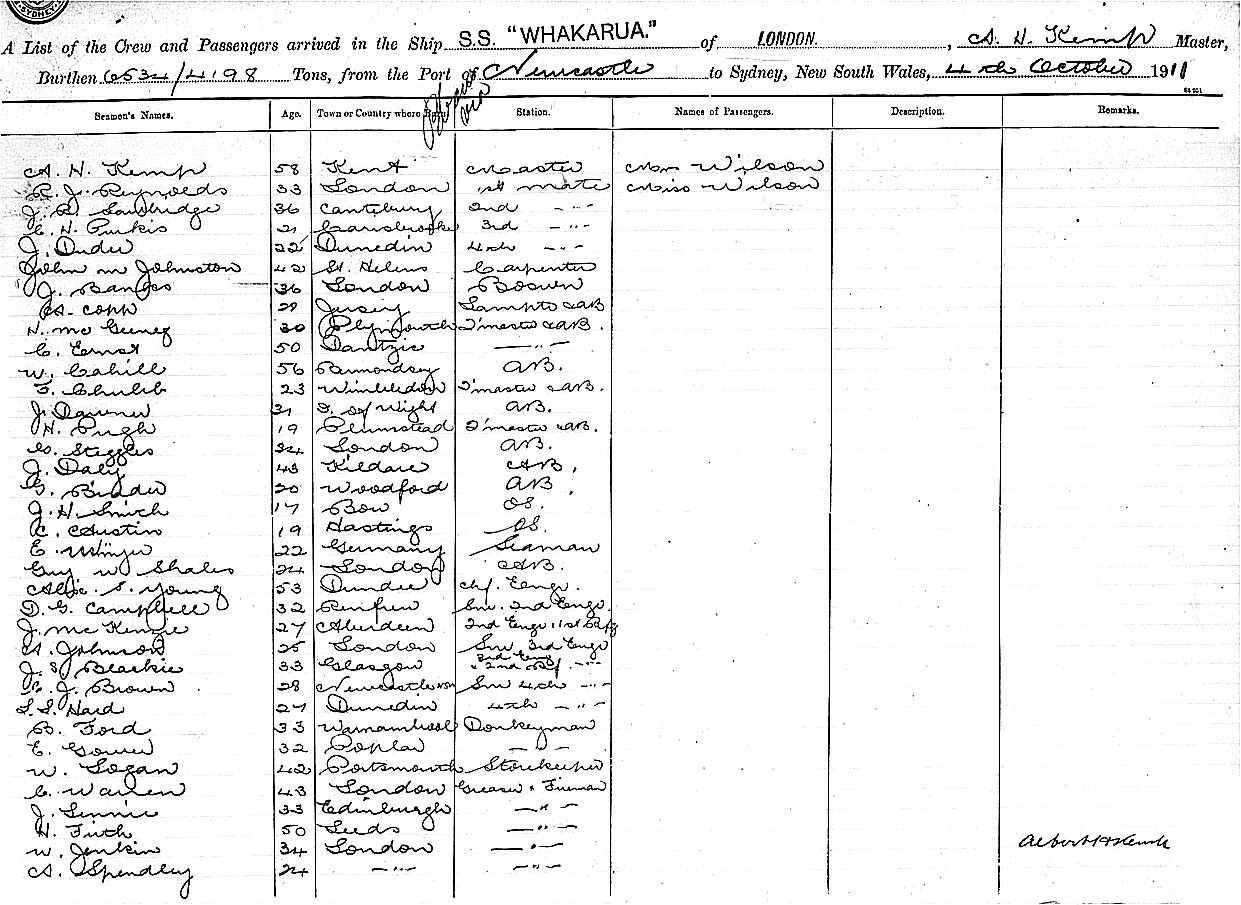 SYDNEY
A List of the Crew and Passengers arrived in the Ship S.S. "WHAKARUA." of LONDON. , A. H. Kemp Master,
Burthen 6534/4198 Tons, from the Port of Newcastle to Sydney, New South Wales, 4th October 1911
via
Seamen's Names. Age. Town or Country where Station. Names of Passengers. Description. Remarks.
A. H. Kemp 58 Kent Master Mr Wilson
R. J. Reynolds 33 London 1st mate Miss Wilson
J. R. 36 2nd -"-
C. H. Purkis 21 3rd -"-
J. 22 Dunedin 4th -"-
John m Johnston 42 St. Helens Carpenter
J. 36 London Bosun
A. Copp 29 Jersey &AB
H. Mc 30 Plymouth &AB.
C. Ernst 50 Dantzic -"-
W. Cahill 56 AB.
F. Chubb 23 Wimbledon &AB.
J. 31 I. of Wight AB.
H. Pugh 19 Plumstead &AB.
G. Steggles 34 London AB.
J. Daly 43 Kildare AB.
G. 20 Woodford AB.
J. H. Smith 17 Bow OS.
C. Austin 19 Hastings OS.
E. 22 Germany Seaman
Guy W Shales 24 London AB.
S. Young 53 Dundee Chf. Engr.
D. G. Campbell 32 Renfrew Snr. 2nd Engr.
J. McKenzie 27 Aberdeen 2nd Engr. & 1st Rfg
A. Johnson 25 London Snr 3rd Engr
J. S. Blackie 33 Glasgow 3rd Eng & 2nd Rf. -"-
C. J. Brown 28 Newcastle NSW Snr 4th -"-
S. S. Hard 27 Dunedin 4th -"-
B. Ford 33 Donkeyman
E. Gower 32 Poplar -"-
W. Logan 42 Portsmouth Storekeeper
C. Warren 43 London Greaser & Fireman
J. 33 Edinburgh -"-
H. Firth 50 Leeds -"-
W. Jenkin 34 London -"-
A. Spendley 24 -"- -"-